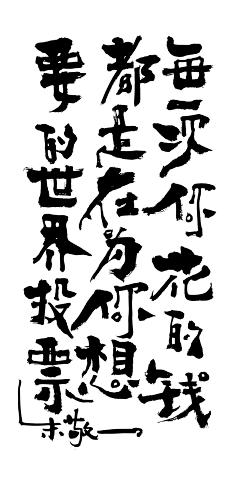 每一次你花的钱
都是在为你想
要的世界投票
朱敬一